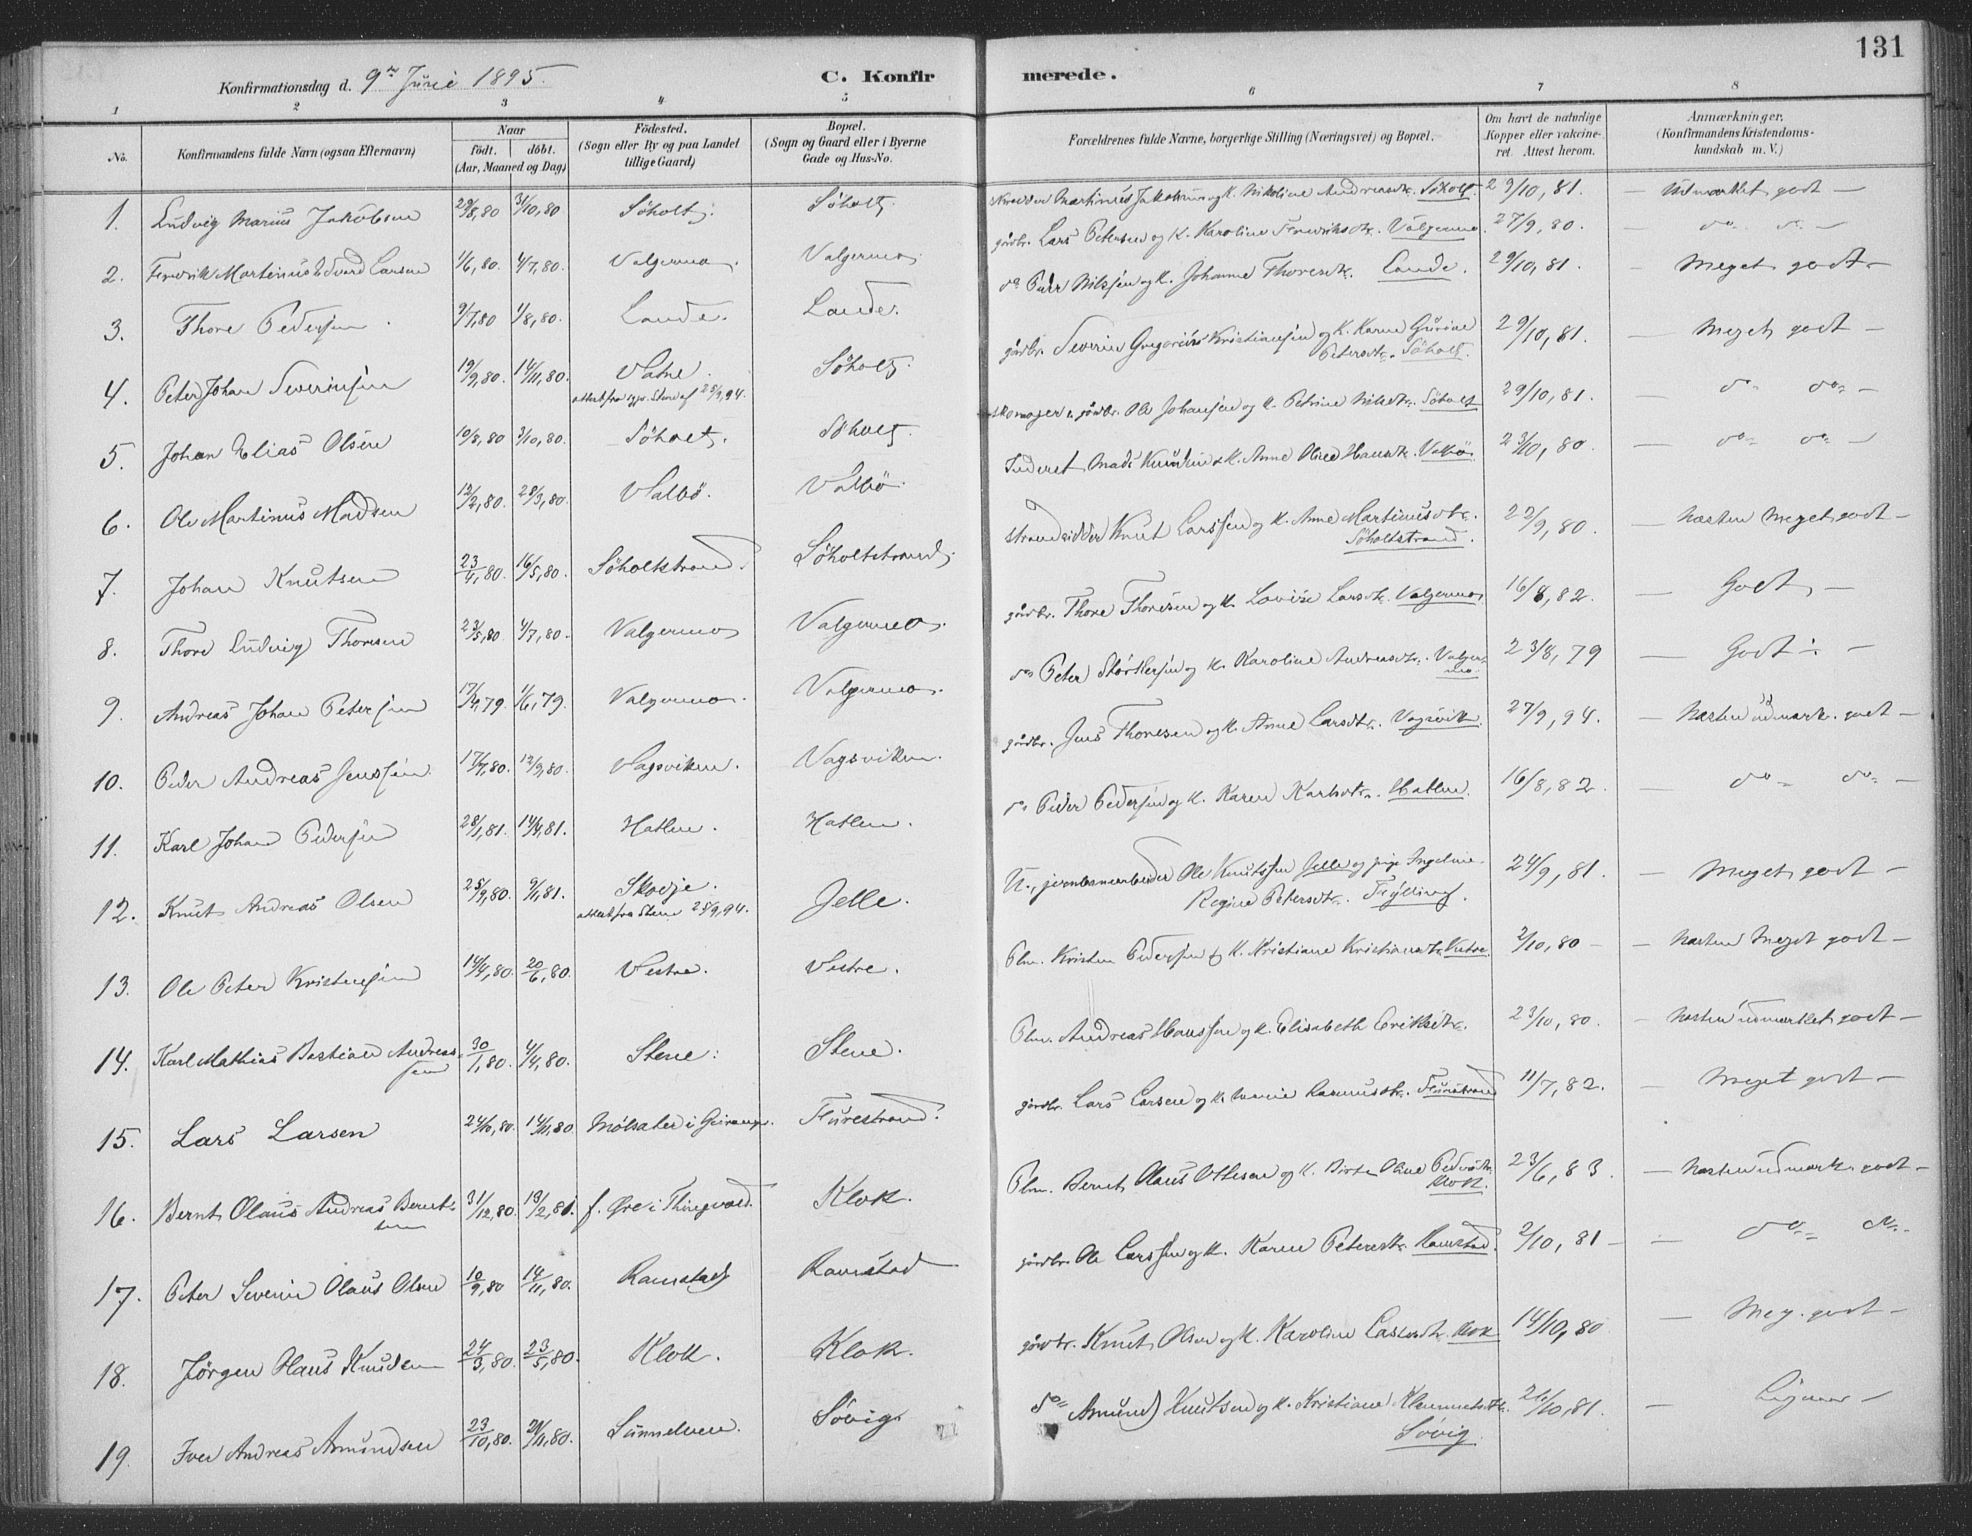 131
Konfirmationsdag d. 9de Juni 1895.
C. Konfirmerede.
1 2 3 4 5 6 7 8
No. Konfirmandens fulde Navn (ogsaa Efternavn) Naar født. døbt. (Aar, Maaned og Dag) Födested. (Sogn eller By og paa Landet tillige Gaard) Bopæl. (Sogn og Gaard eller i Byerne Gade og Hus-No. Forældrenes fulde Navne, borgerlige Stilling (Næringsvei) og Bopæl. Om havt de naturlige Kopper eller vakcineret. Attest herom. Anmærkninger. (Konfirmandens Kristendomskundskab m. V.)
1. Ludvig Marius Jakobsen 29/8,80 3/10,80 Søholt. Søholt. Martinus Jakobsen og K. Nikoline Andreasdtr. Søholt. 29/10,81. — Udmærket godt —
2. Fredrik Martinus Edvard Larsen 1/6,80. 4/7,80. Valgermo. Valgermo. gårdbr. Lars Petersen og K. Karoline Fredriksdtr. Valgermo. 27/9,80. — do do —
3. Thore Pedersen 9/7,80 1/8,80. Lande. Lande. do Peder Nilssen og K. Johanne Thoresdtr. Lande. 29/10,81. — Meget godt —
4. Peter Johan Severinsen 19/9,80. 14/11,80. Vatne. Søholt. gårdbr. Severin Gregorius Kristiansen og K. Karen Gurine 29/10,81. — Meget godt —
Petersdtr. Søholt.
5. Johan Elias Olsen 10/8,80 3/10,80. Søholt. Søholt. skomager & gårdbr. Ole Johansen og K. Petrine Nilsdtr. Søholt 29/10,81. — do do —
6. Ole Martinus Madsen 12/2,80. 28/3,80. Valbø. Valbø. Inderst Mads Knudsen & K. Anne Oline Hansdtr. Valbø. 23/10,80. — do do —
7. Johan Knutsen 23/4,80. 16/5,80. Søholtstrand. Søholtstrand. strandsidder Knut Larssen og K. Anne Martinusdtr. 22/9,80. — Næsten Meget godt —
Søholtstrand.
8. Thore Ludvig Thoresen 23/5,80 4/7,80. Valgermo Valgermo. gårdbr. Thore Thoresen og K. Lovise Larsdtr. Valgermo 16/8,82. — Godt —
9. Andreas Johan Petersen 17/4,79. 1/6,79. Valgermo. Valgermo. do Peter Størkersen og K. Karoline Andreasdtr. Valgermo. 23/8,79 — Godt —
10. Peder Andreas Jenssen 17/7,80. 12/9,80. Vagsviken. Vagsviken. gårdbr. Jens Thoresen og K. Anne Larsdtr. Vagsvik. 27/9,94. — Næsten udmærk. godt —
11. Karl Johan Pedersen 28/1,81. 14/4,81. Hatlen. Hatlen. do Peder Pedersen og K. Karen Karlsdtr. Hatlen. 16/8,82. — do do —
12. Knut Andreas Olsen 25/9,80. 9/1,81. Skodje. Jelle. U., jernbanearbeider Ole Knutssen Jelle og pige Ingeline 24/9,81. — Meget godt —
attest fra Stene 25/9,94. Regine Petersdtr. Frylling.
13. Ole Peter Kristensen 14/4,80. 20/6,80. Vestre. Vestre. Plm. Kristen Pedersen & K. Kristiane Kristiansdtr. Vestre. 2/10,80 — Næsten Meget godt —
14. Karl Mathias Bastian Andreassen 30/1,80. 4/4,80. Stene. Stene. Plm. Andreas Hanssen og K. Elisabeth Eriksdtr. 23/10,80. — Næsten udmærket godt —
15. Lars Larsen 24/10,80. 14/11,80 Mølsæter i Geiranger. Furestrand. gårdbr. Lars Larsen og K. Marie Rasmusdtr. Furestrand 11/7,82. — Meget godt —
16. Bernt Olaus Andreas Berntsen 31/12,80. 13/2,81. f. Øre i Thingvold. Klok. Plm. Bernt Olaus Ottesen og K. Oline Pedersdtr. Klok. 23/6,83. — Næsten udmærk. godt —
17. Peter Severin Olaus Olsen 10/9,80 14/11,80. Ramstad Ramstad gårdbr. Ole Larssen og K. Karen Petersdtr. Ramstad. 2/10,81 — do do
18. Jörgen Claus Knudsen 24/3,80. 23/5,80. Klok. Klok. gårdbr. Knut Olsen og K. Karoline Larsdtr. Klok 14/10,80 — Meg. godt —
19. Iver Andreas Amundsen 23/10,80. 21/11,80. Sunnelven. Søvig do Amund Knutsen og K. Kristiane Klemmetsdtr. Søvig 26/10,81. —